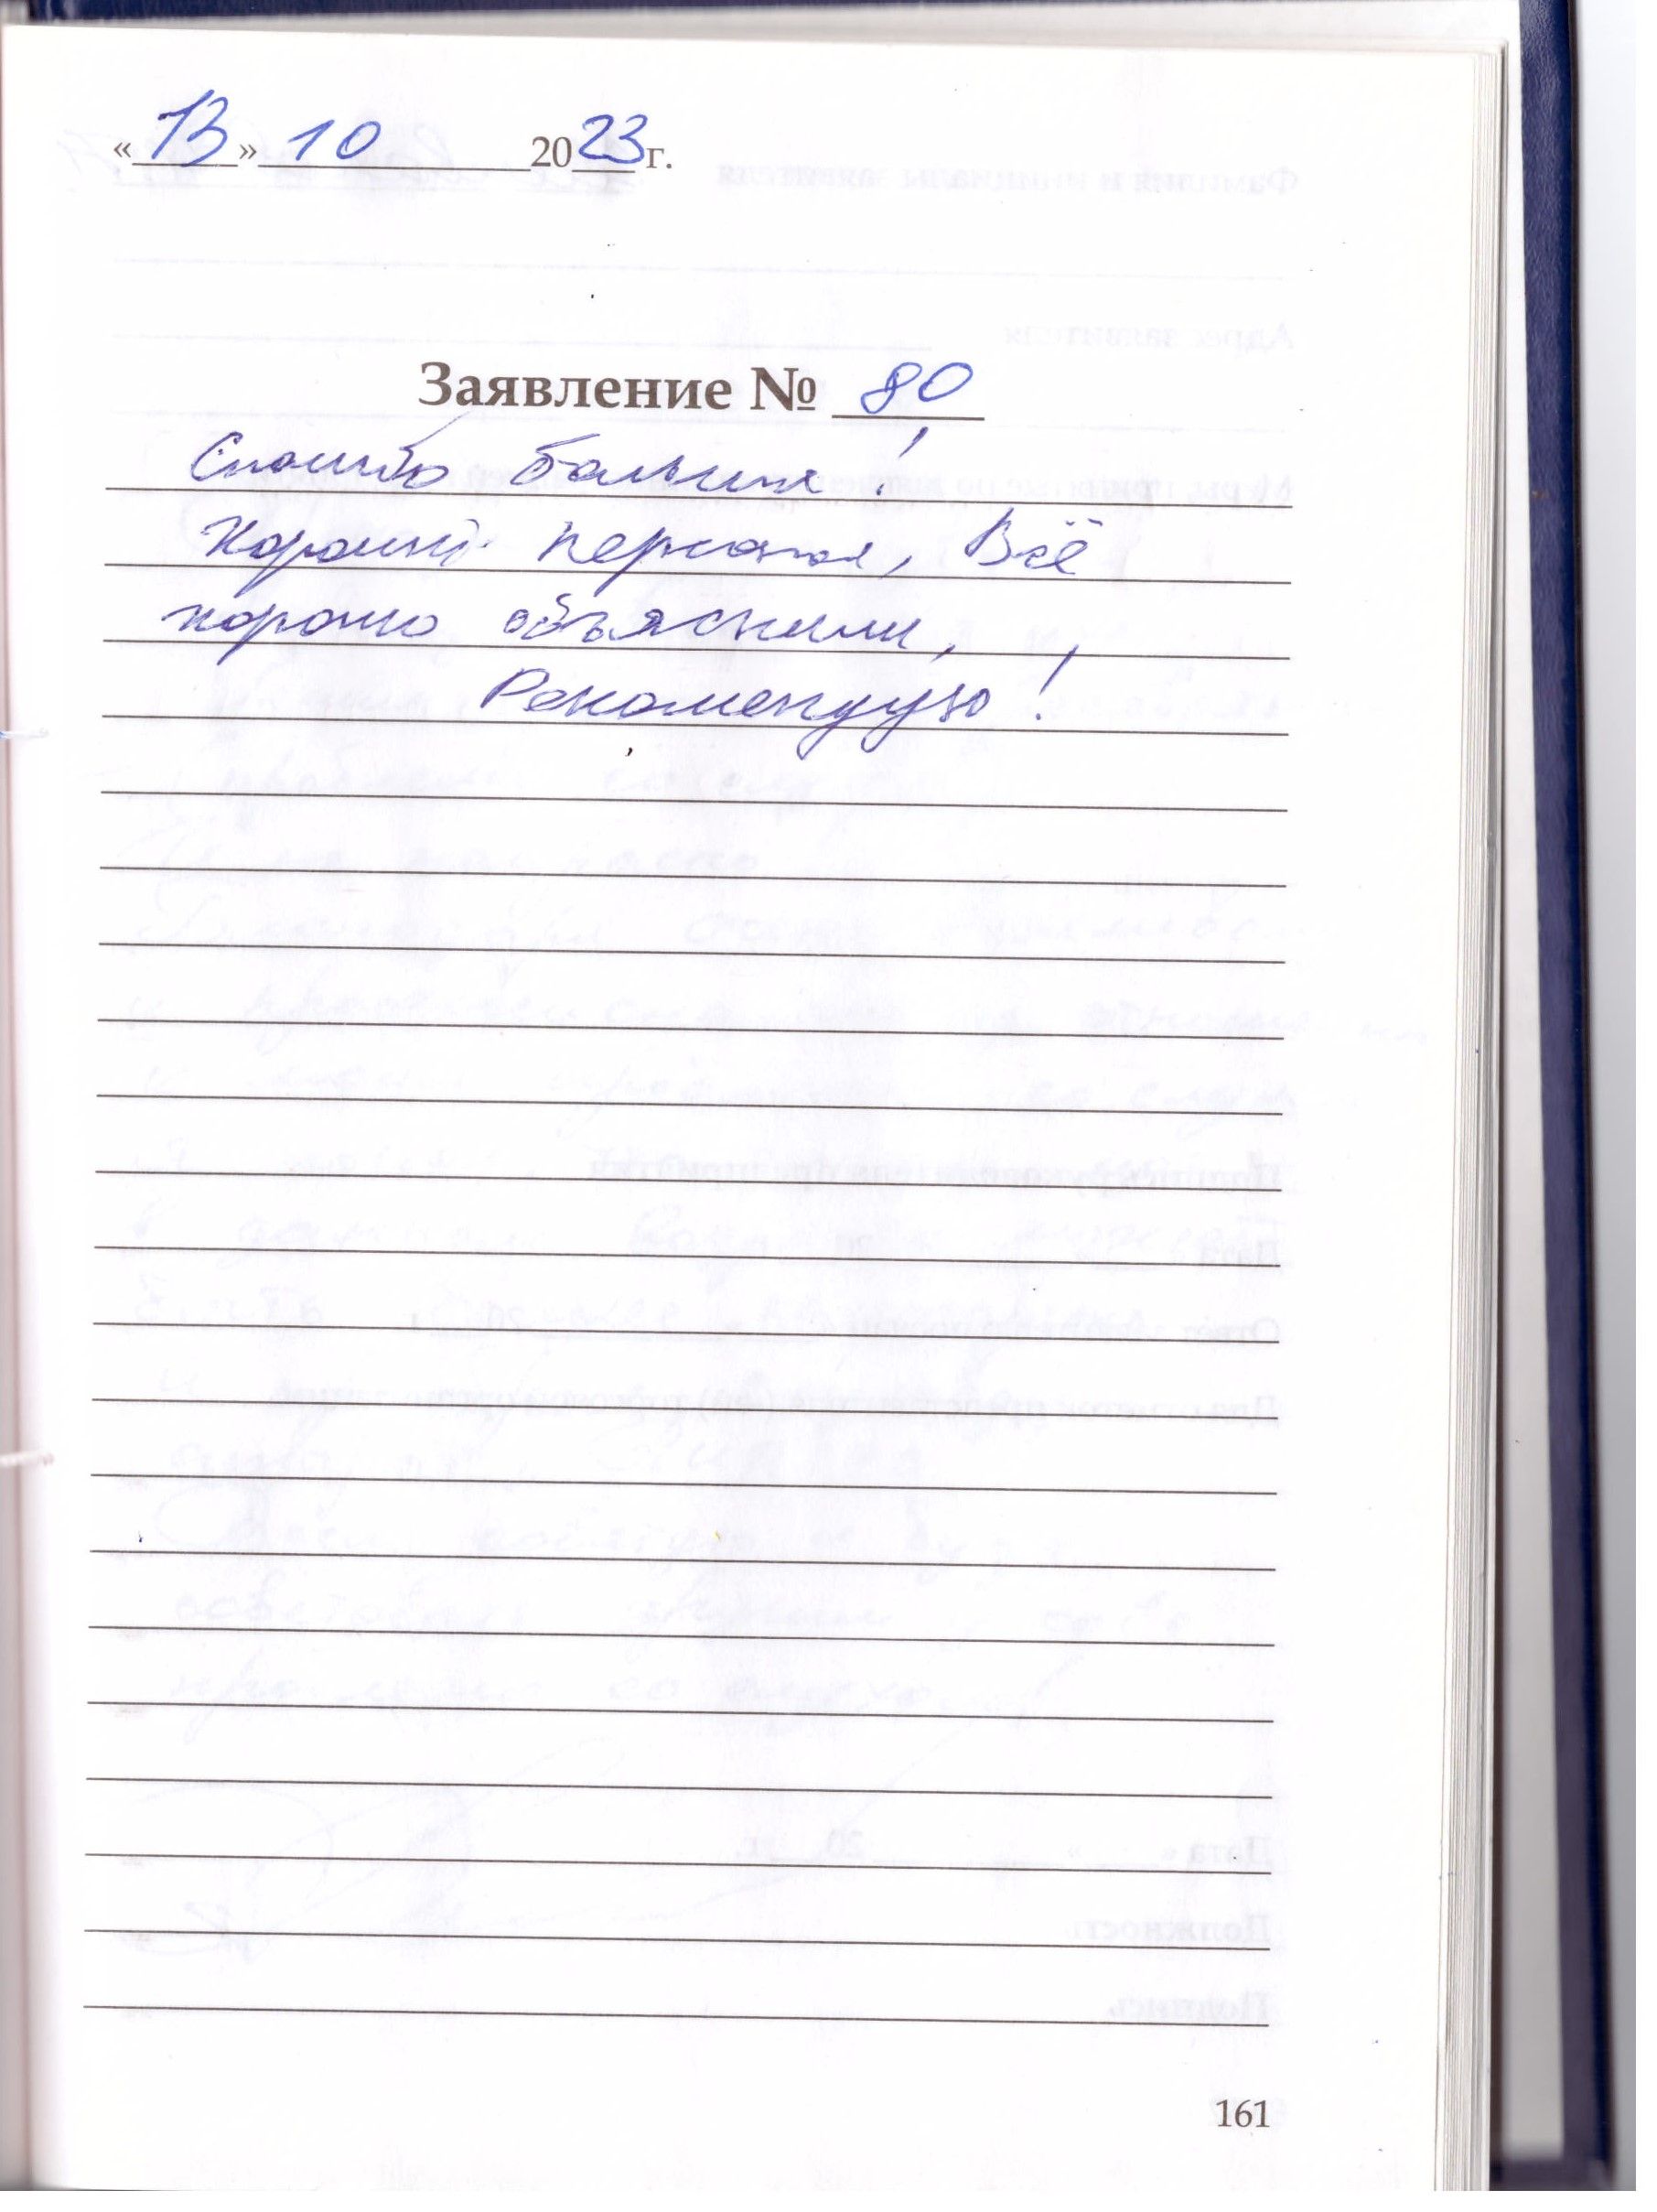 «13» 10 2023г.
Заявление № 80
Спасибо большое!
Хороший персонал, Всё
хорошо объяснили,
Рекомендую!
161